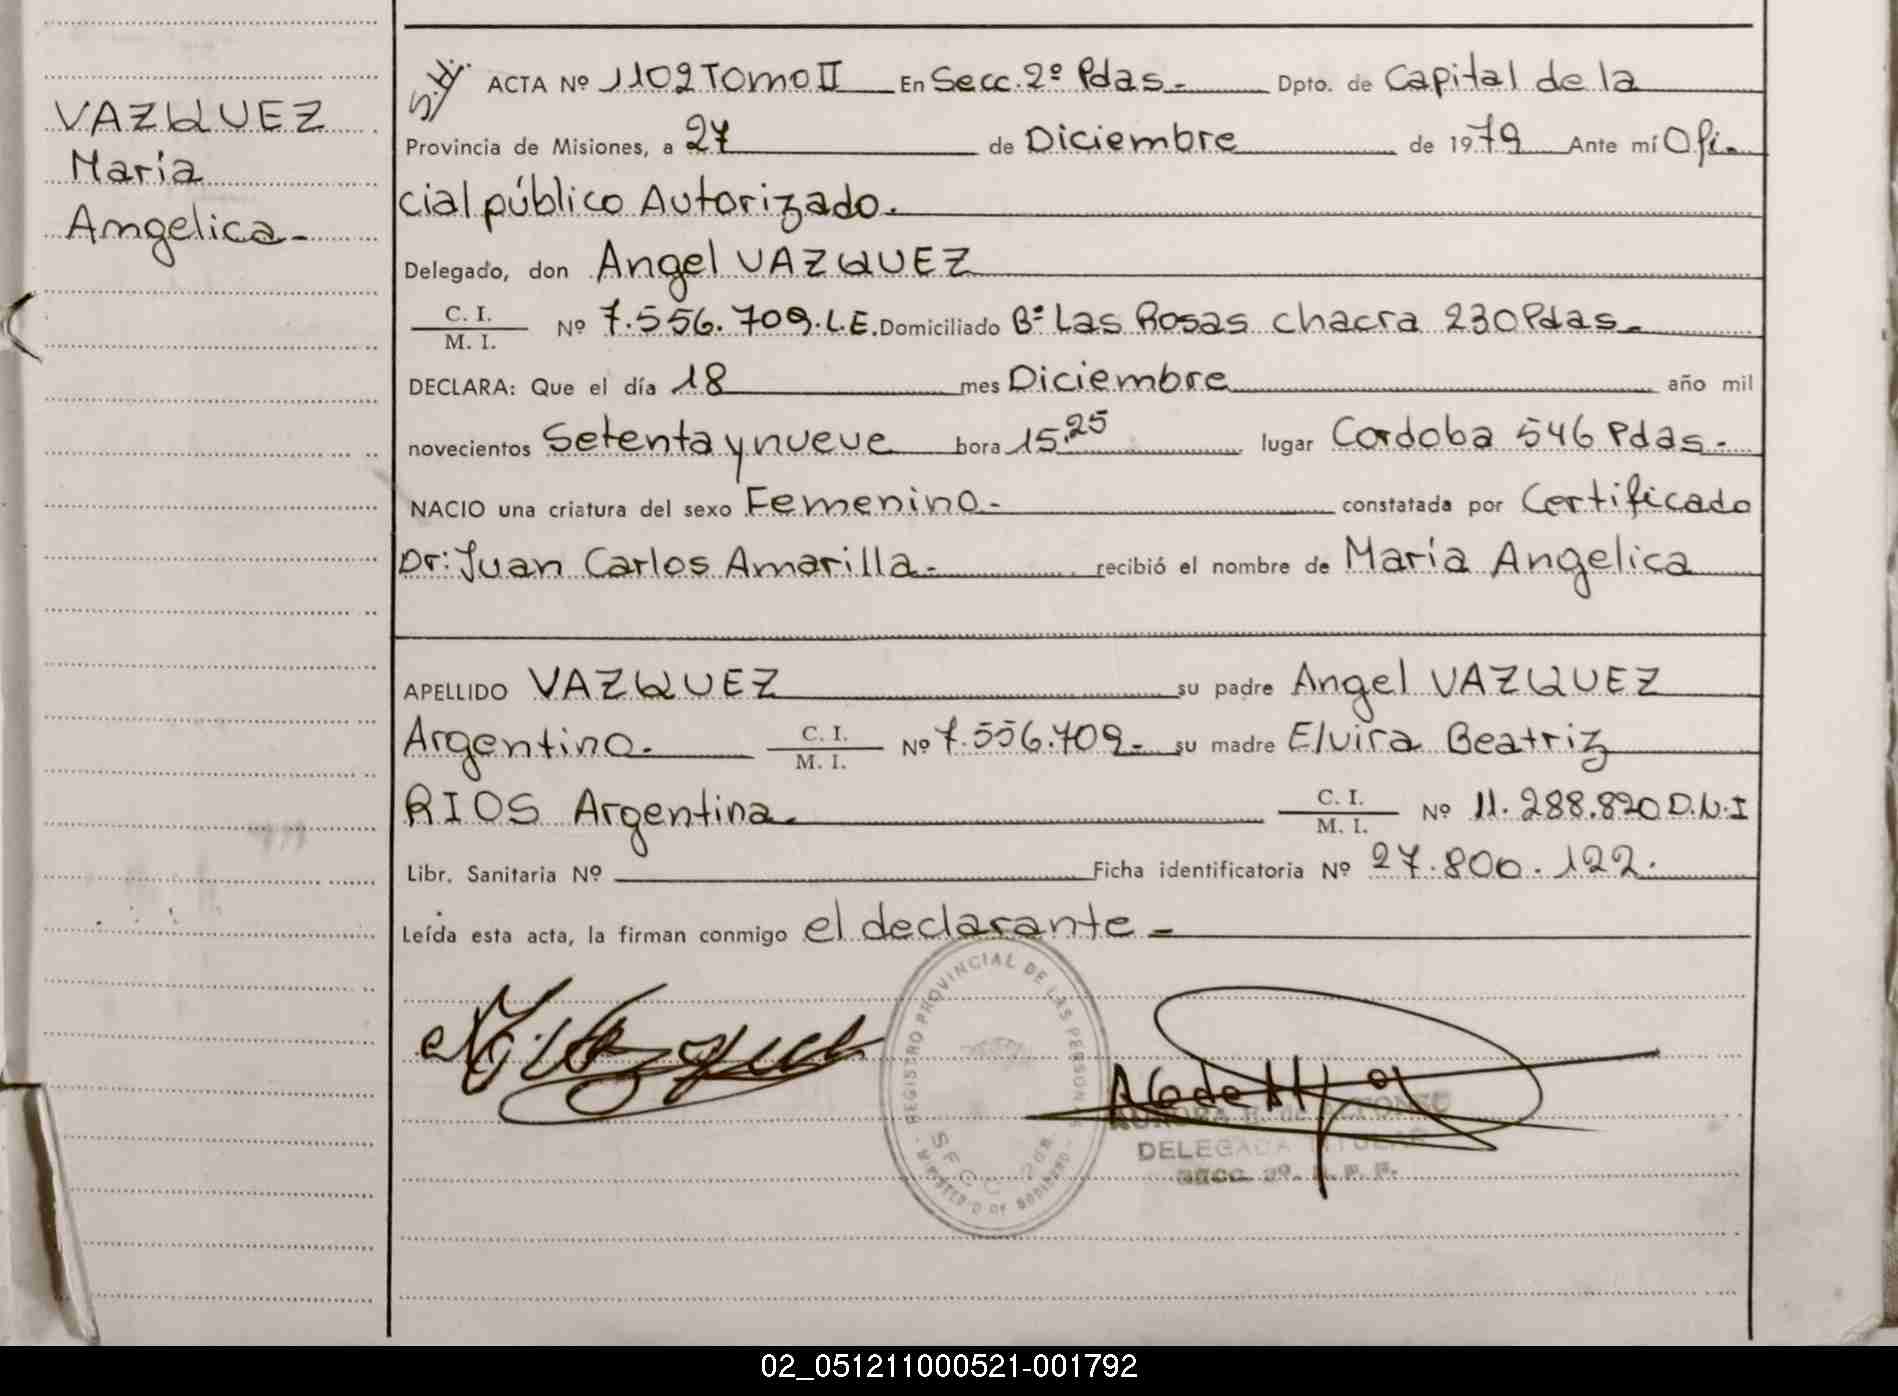 VAZQUEZ
María
Angelica-
S.H. ACTA Nº 1102 Tomo II En Secc. 2º Pdas.- Dpto. de Capital de la
Provincia de Misiones, a 27 de Diciembre de 1979 Ante mí Ofi-
cial público Autorizado.
Delegado, don Angel VAZQUEZ
C. I.
M. I.
Nº 7.556.709.L.E. Domiciliado Bº Las Rosas chacra 230 Pdas.-
DECLARA: Que el día 18 mes Diciembre año mil
novecientos Setenta y nueve hora 15.25 lugar Cordoba 546 Pdas.-
NACIO una criatura del sexo Femenino.- constatada por Certificado
Dr: Juan Carlos Amarilla.- recibió el nombre de María Angelica
APELLIDO VAZQUEZ su padre Angel VAZQUEZ
Argentino.- C. I.
M. I.
Nº 7.556.709.- su madre Elvira Beatriz
RIOS Argentina.- C. I.
M. I.
Nº 11.288.820 D.N.I
Libr. Sanitaria Nº Ficha identificatoria Nº 27.800.122.
Leída esta acta, la firman conmigo el declarante.-
REGISTRO PROVINCIAL DE LAS PERSONAS
SECC. 2da.
MINISTERIO DE GOBIERNO
DELEGADA TITULAR
SECC. 2º. R. P. P.
02_051211000521-001792